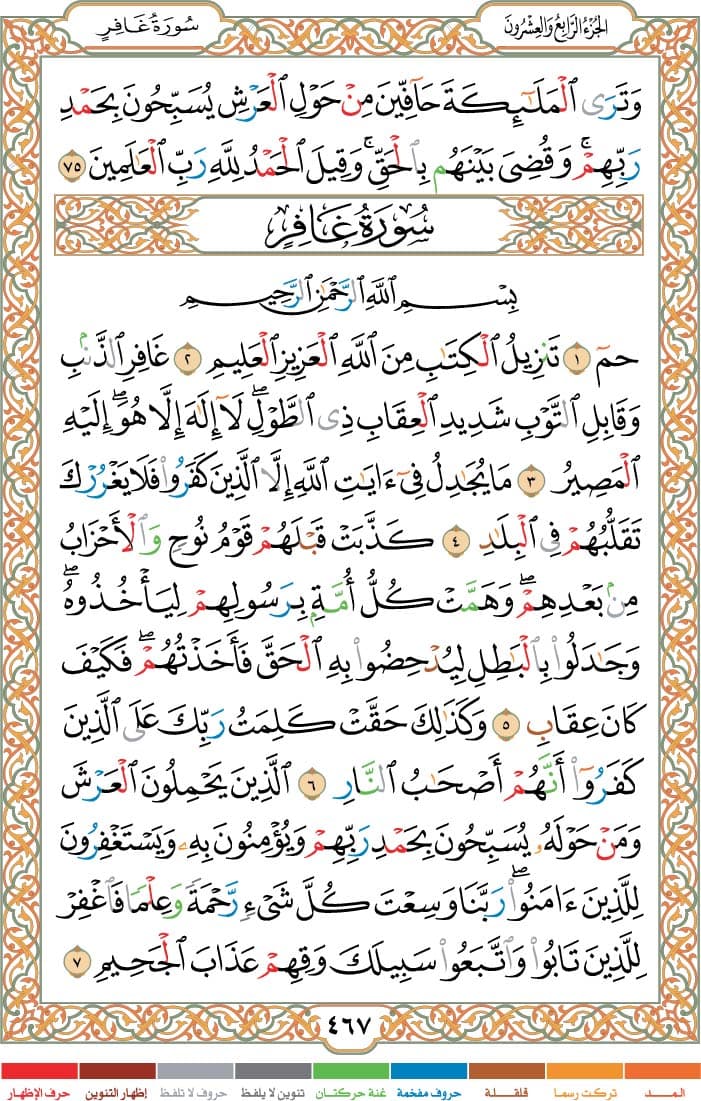 الجزء الرابع والعشرون
سورة غافر
وَتَرَى ٱلْمَلَٰٓئِكَةَ حَآفِّينَ مِنْ حَوْلِ ٱلْعَرْشِ يُسَبِّحُونَ بِحَمْدِ
رَبِّهِمْ ۚ وَقُضِىَ بَيْنَهُم بِٱلْحَقِّ ۚ وَقِيلَ ٱلْحَمْدُ لِلَّهِ رَبِّ ٱلْعَٰلَمِينَ ٧٥
سُورَةُ غَافِرٍ
بِسْمِ ٱللَّهِ ٱلرَّحْمَٰنِ ٱلرَّحِيمِ
حمٓ ١ تَنزِيلُ ٱلْكِتَٰبِ مِنَ ٱللَّهِ ٱلْعَزِيزِ ٱلْعَلِيمِ ٢ غَافِرِ ٱلذَّنۢبِ
وَقَابِلِ ٱلتَّوْبِ شَدِيدِ ٱلْعِقَابِ ذِى ٱلطَّوْلِ ۖ لَآ إِلَٰهَ إِلَّا هُوَ ۖ إِلَيْهِ
ٱلْمَصِيرُ ٣ مَا يُجَٰدِلُ فِىٓ ءَايَٰتِ ٱللَّهِ إِلَّا ٱلَّذِينَ كَفَرُوا۟ فَلَا يَغْرُرْكَ
تَقَلُّبُهُمْ فِى ٱلْبِلَٰدِ ٤ كَذَّبَتْ قَبْلَهُمْ قَوْمُ نُوحٍ وَٱلْأَحْزَابُ
مِنۢ بَعْدِهِمْ ۖ وَهَمَّتْ كُلُّ أُمَّةٍۭ بِرَسُولِهِمْ لِيَأْخُذُوهُ ۖ
وَجَٰدَلُوا۟ بِٱلْبَٰطِلِ لِيُدْحِضُوا۟ بِهِ ٱلْحَقَّ فَأَخَذْتُهُمْ ۖ فَكَيْفَ
كَانَ عِقَابِ ٥ وَكَذَٰلِكَ حَقَّتْ كَلِمَتُ رَبِّكَ عَلَى ٱلَّذِينَ
كَفَرُوٓا۟ أَنَّهُمْ أَصْحَٰبُ ٱلنَّارِ ٦ ٱلَّذِينَ يَحْمِلُونَ ٱلْعَرْشَ
وَمَنْ حَوْلَهُۥ يُسَبِّحُونَ بِحَمْدِ رَبِّهِمْ وَيُؤْمِنُونَ بِهِۦ وَيَسْتَغْفِرُونَ
لِلَّذِينَ ءَامَنُوا۟ ۖ رَبَّنَا وَسِعْتَ كُلَّ شَىْءٍ رَّحْمَةً وَعِلْمًا فَٱغْفِرْ
لِلَّذِينَ تَابُوا۟ وَٱتَّبَعُوا۟ سَبِيلَكَ وَقِهِمْ عَذَابَ ٱلْجَحِيمِ ٧
٤٦٧
المـــد تركت رسما قلقـلـة حروف مفخمة غنة حركتان تنوين لا يلفظ حروف لا تلفظ إظهار التنوين حرف الإظهار